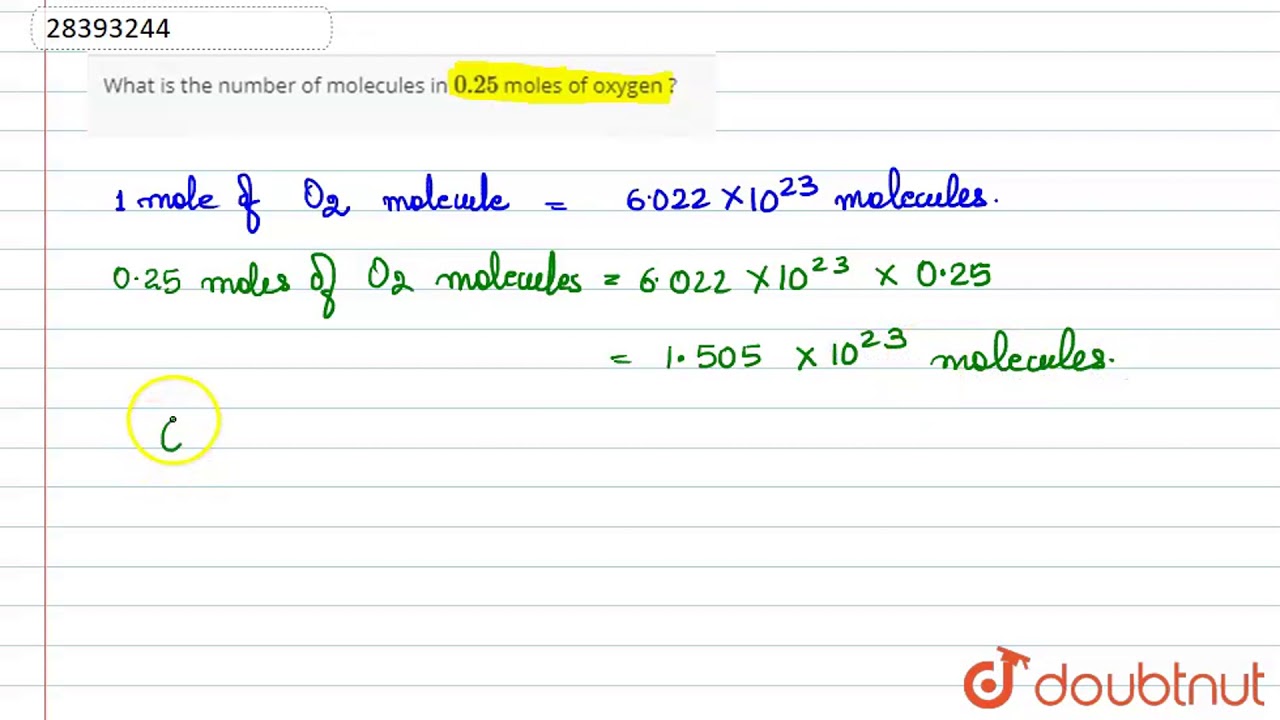 28393244
What is the number of molecules in 0.25 moles of oxygen ?
1 mole of O2 molecule = 6.022 × 10^23 molecules.
0.25 moles of O2 molecules = 6.022 × 10^23 × 0.25
= 1.505 × 10^23 molecules.
(
doubtnut